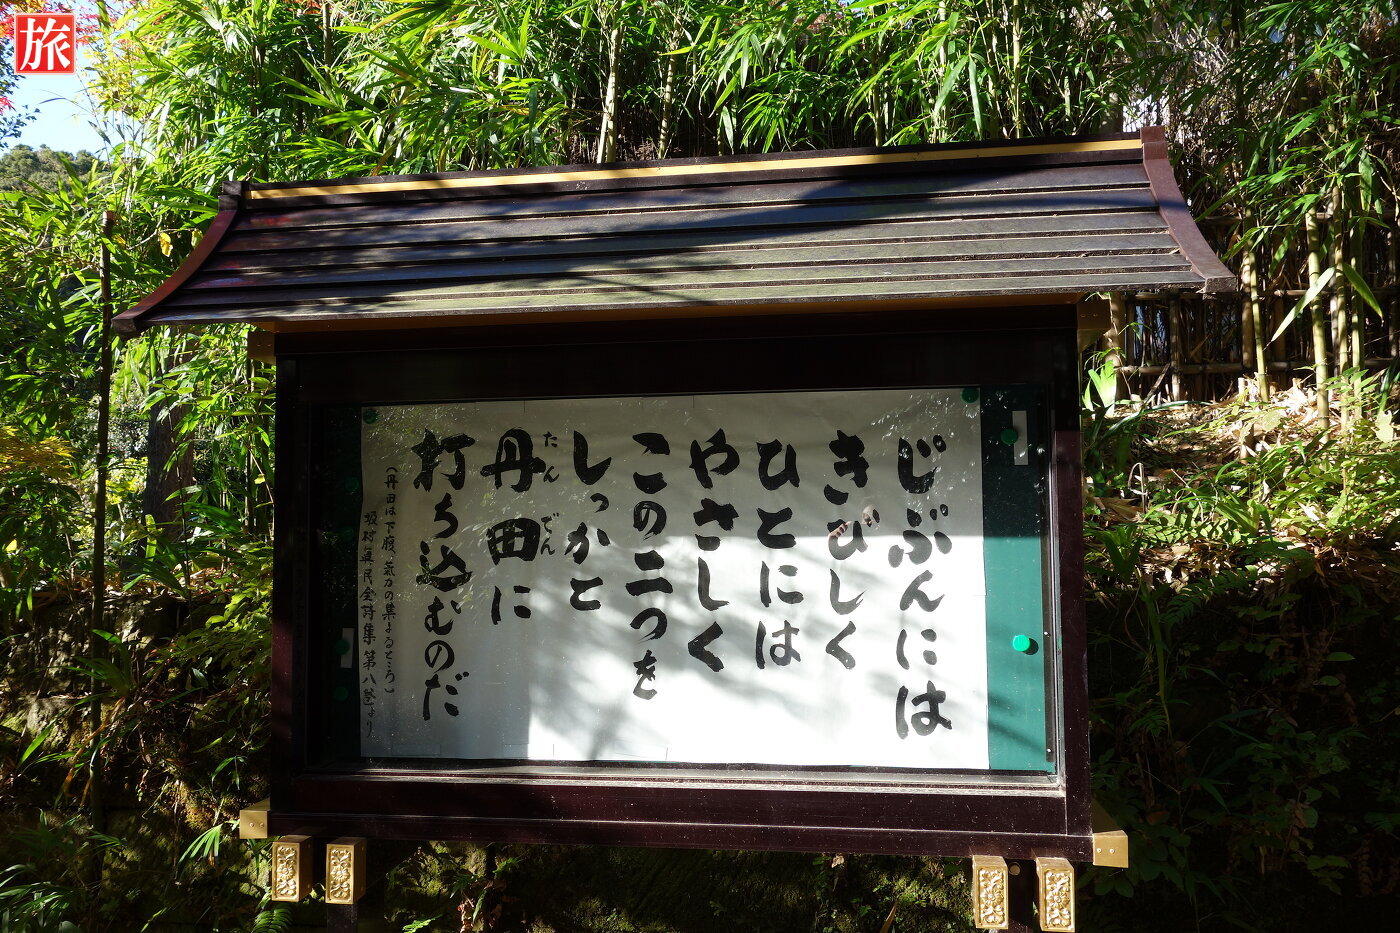 旅
じぶんには
きびしく
ひとには
やさしく
この二つを
しっかと
丹田に
たんでん
打ち込むのだ
（丹田は下腹、氣力の集まるところ）
坂村真民全詩集第八巻より